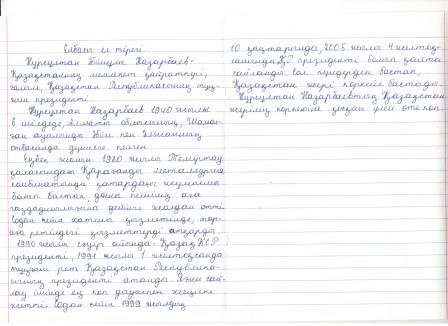 Елбасы-ел тірегі
Нұрсұлтан Әбішұлы Назарбаев-
Қазақстанның мемлекет қайраткері,
ғалым, Қазақстан Республикасының тұң-
ғыш президенті
Нұрсұлтан Назарбаев 1940 жылы
6 шілдеде, Алматы облысының, Шамал-
ған ауылында Әбіш пен Әлжанның
отбасында дүниеге келген
Еңбек жолын 1960 жылы Теміртау
қаласындағы Қарағанды металлургия
комбинатында қатардағы жұмысшы
болып бастап, домна пешінің аға
газдаушылығына дейінгі жолдан өтті.
Содан кейін хатшы қызметінде, төр-
аға ретіндегі қызметтерді атқарды.
1990 жылы сәуір айында- ҚазақКСР
президенті, 1991 жылы 1 желтоқсанда
тұңғыш рет Қазақстан Республика-
сының президенті атанды. Яғни сай-
лау ішінде ең көп дауыспен жеңіске
жетті. Содан кейін 1999 жылдың
10 қаңтарында, 2005 жылы 4 желтоқ-
санында ҚР президенті болып қайта
сайланды. Сол күндерден бастап,
Қазақстан жері көркейе бастады.
Нұрсұлтан Назарбаевтың Қазақстан
жерінің көркеюіне қосқан үлесі өте көп